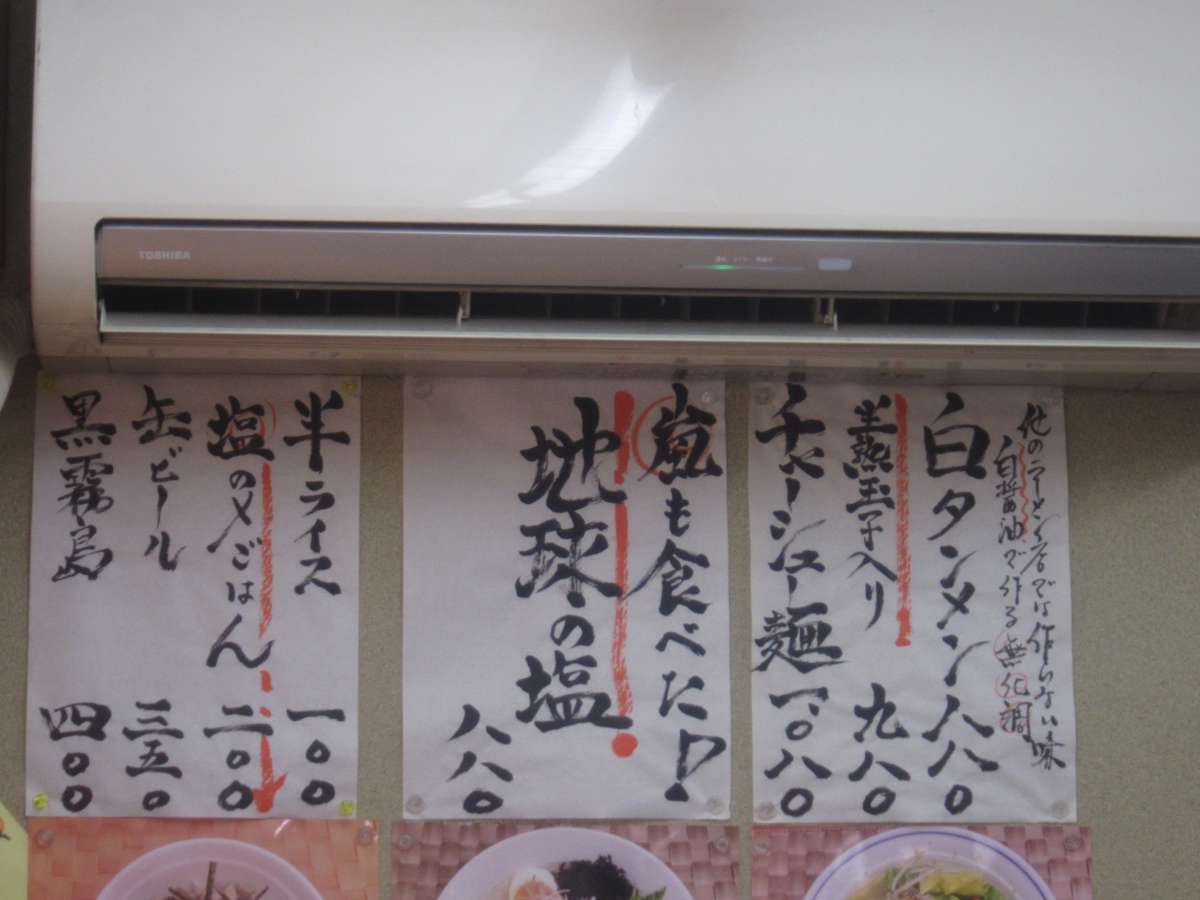 TOSHIBA
他のラーメン店では作れない味
白醤油で作る無化調
白タンメン 八八〇
半熟玉子入り 九八〇
チャーシュー麺 一、〇八〇
嵐も食べた!!
地球の塩
八八〇
半ライス 一〇〇
塩の〆ごはん 二〇〇
缶ビール 三五〇
黒霧島 四〇〇